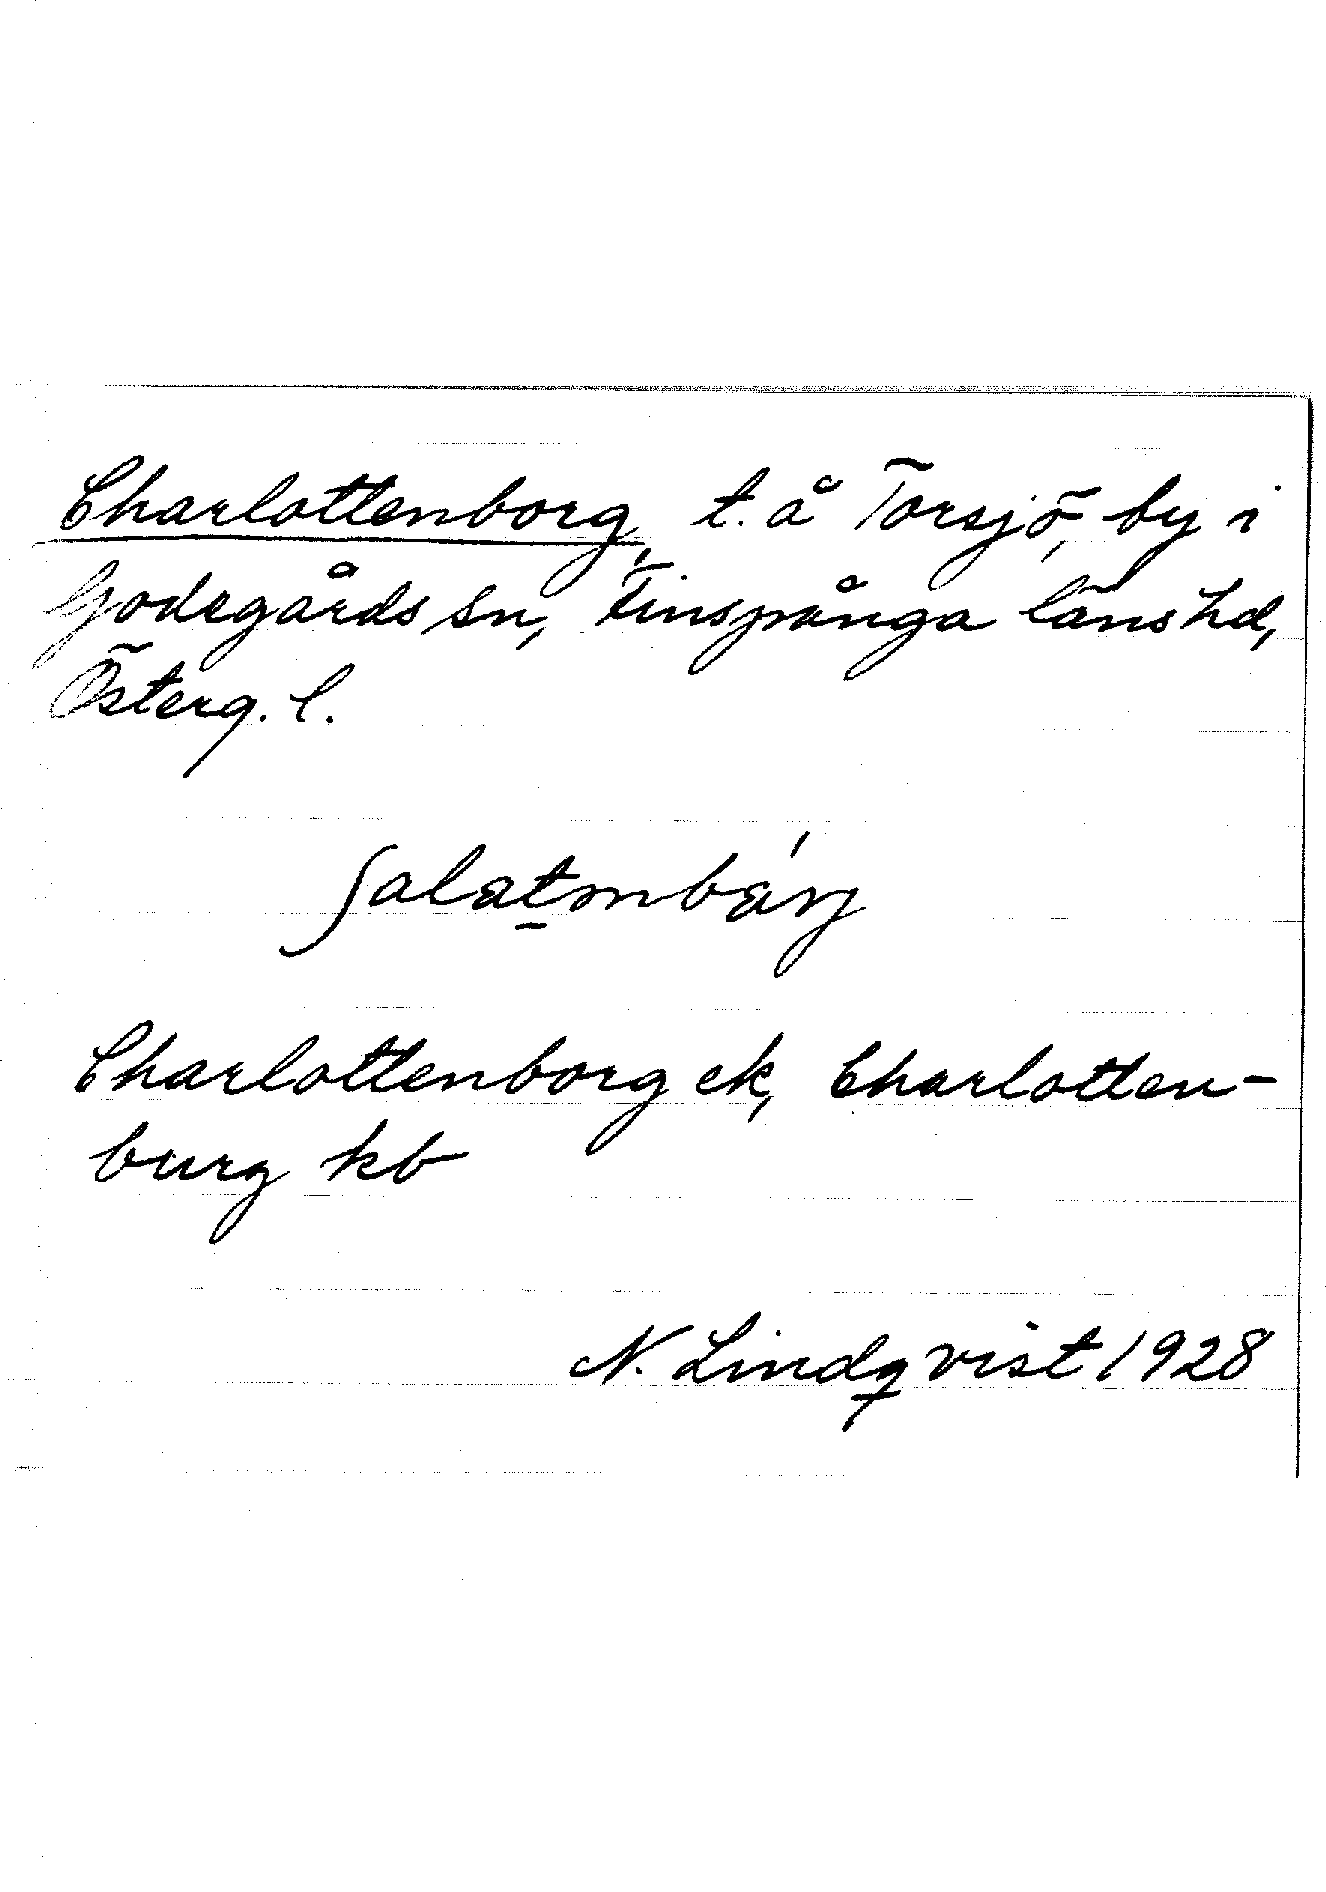 Charlottenborg, t. å Torsjö, by i
Godegårds sn, Finspånga läns hd,
Österg. l.
ʃalat̠mbárj
Charlottenborg ek, Charlotten-
burg kb
N. Lindqvist 1928